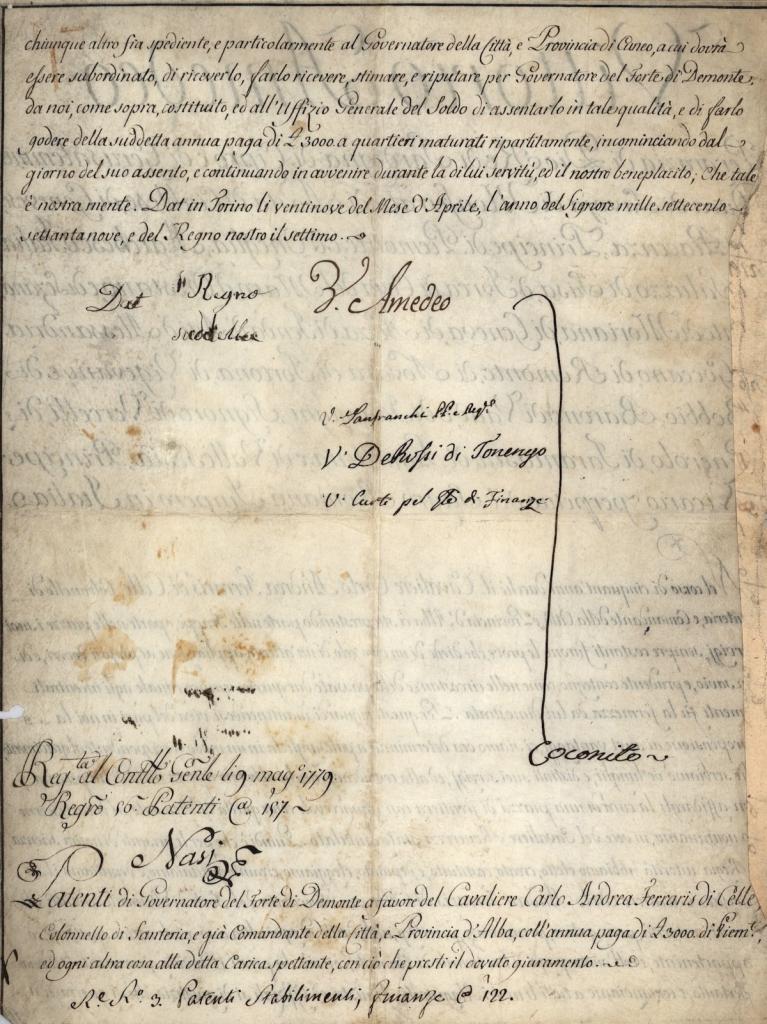 chiunque altro fia spediente, e particolarmente al Governatore della Città, e Provincia di Cuneo, a cui dovrà
essere subordinato, di riceverlo, farlo ricevere, stimare, e riputare per Governatore del Forte di Demonte,
da noi, come sopra, costituito, ed all'Uffizio Generale del Soldo di assentarlo in tale qualità, e di farlo
godere della suddetta annua paga di L 3000. a quartieri maturati ripartitamente, incominciando dal
giorno del suo assento, e continuando in avvenire durante la di lui servitù, ed il nostro beneplacito; Che tale
è nostra mente. Dat in Torino li ventinove del Mese d'Aprile, l'anno del Signore mille settecento
settantanove, e del Regno nostro il settimo.
Regno
V. Amedeo
V. Lanfranchi
V. DeRossi di Tonengo
V. Curti pel di Finanze
Coconito
Reg.ta al Gen.le li 9 mag.o 1779
Reg.ro 50. Patenti C. 157
Nasi
Patenti di Governatore del Forte di Demonte a favore del Cavaliere Carlo Andrea Ferraris di Celle
Colonnello di Fanteria, e già Comandante della Città, e Provincia d'Alba, coll'annua paga di L 3000. di Piem.te,
ed ogni altra cosa alla detta Carica spettante, con ciò che presti il dovuto giuramento.
R.o 3. Patenti Stabilimenti, Finanze C 122.